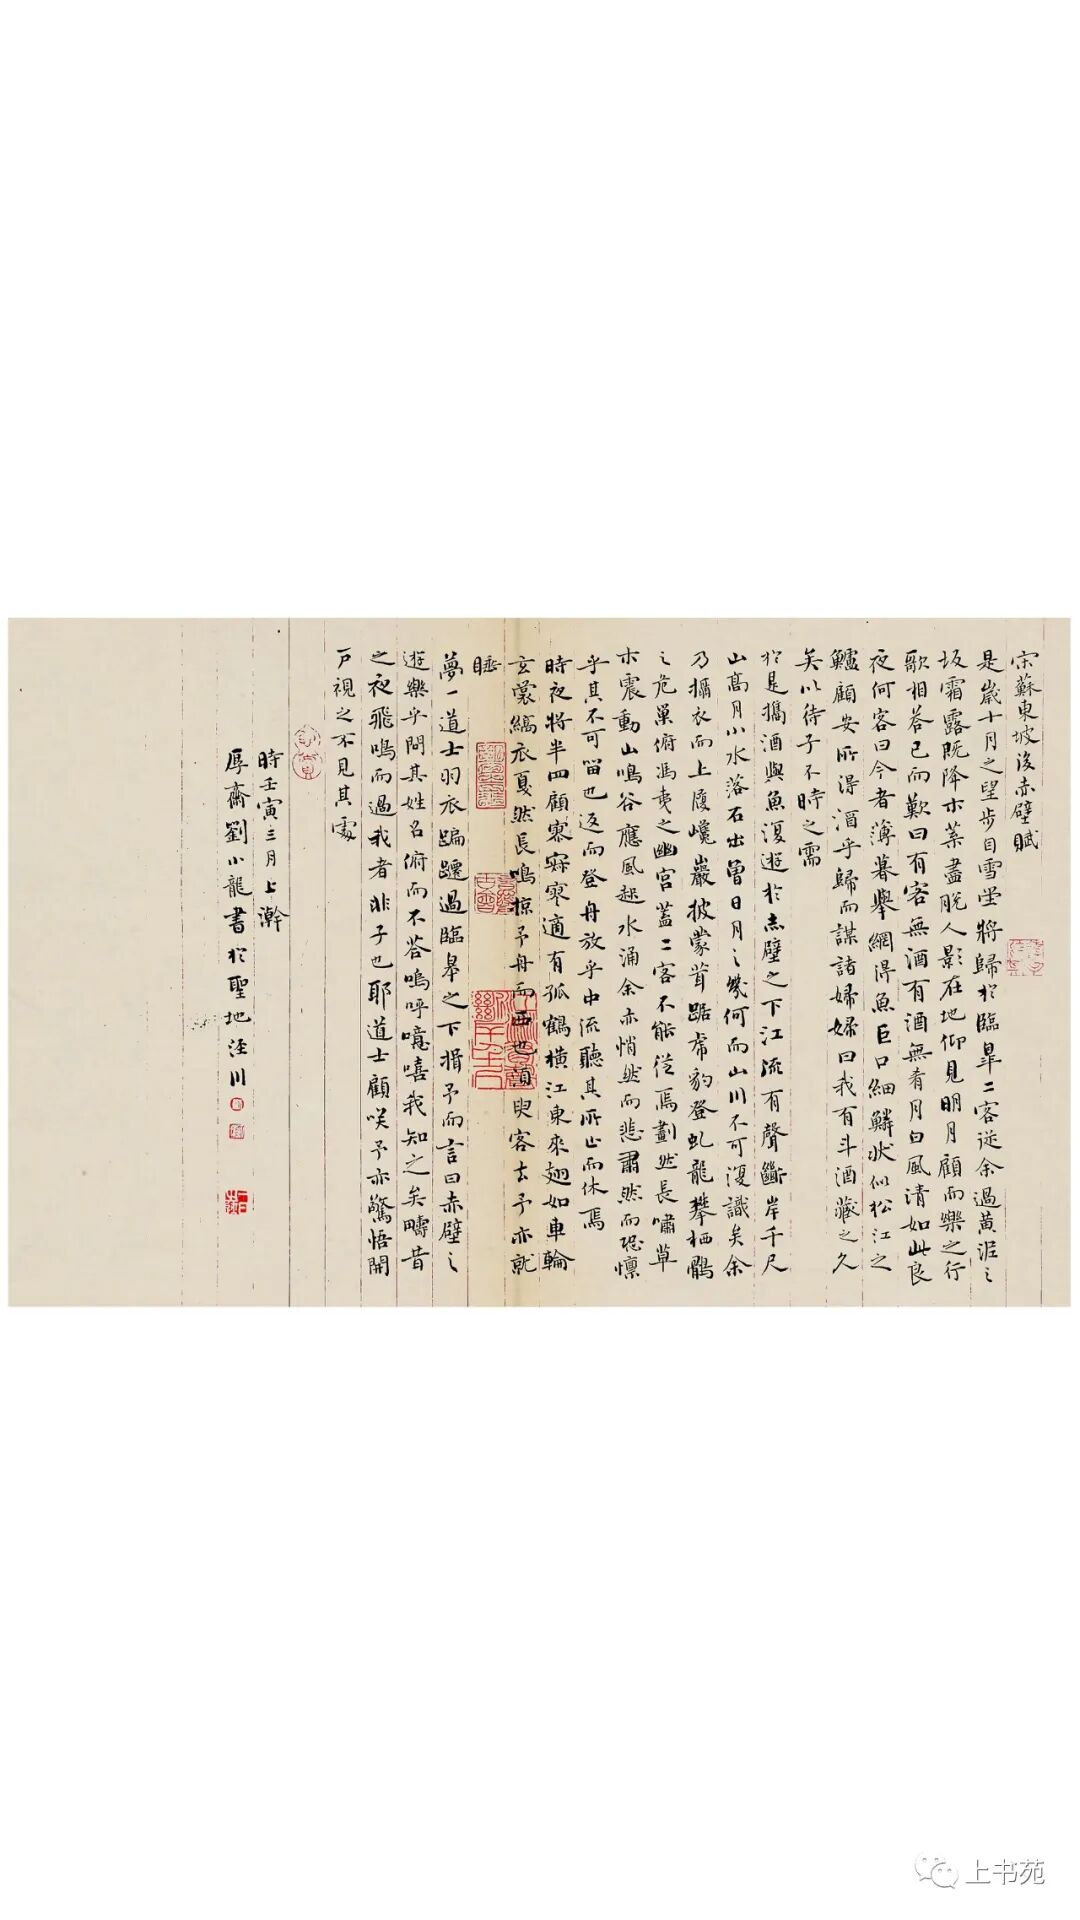 宗蘇東坡後赤壁賦
是歲十月之望步自雪堂將歸於臨皋二客從余過黃泥之
坂霜露既降木葉盡脫人影在地仰見明月顧而樂之行
歌相答已而歎曰有客無酒有酒無肴月白風清如此良
夜何客曰今者薄暮舉網得魚巨口細鱗狀似松江之
鱸顧安所得酒乎歸而謀諸婦婦曰我有斗酒藏之久
矣以待子不時之需
於是攜酒與魚復遊於赤壁之下江流有聲斷岸千尺
山高月小水落石出曾日月之幾何而山川不可復識矣余
乃攝衣而上履巉巖披蒙茸踞虎豹登虬龍攀栖鶻
之危巢俯馮夷之幽宮蓋二客不能從焉劃然長嘯草
木震動山鳴谷應風起水涌余亦悄然而悲肅然而恐懍
乎其不可留也返而登舟放乎中流聽其所止而休焉
時夜將半四顧寥寂寥適有孤鶴橫江東來翅如車輪
玄裳縞衣戛然長鳴掠予舟而西也須臾客去予亦就
睡
夢一道士羽衣蹁躚過臨皋之下揖予而言曰赤壁之
遊樂乎問其姓名俯而不答嗚呼噫嘻我知之矣疇昔
之夜飛鳴而過我者非子也耶道士顧笑予亦驚悟開
戶視之不見其處
時壬寅三月上澣
厚齋劉小龍書於聖地涇川
上书苑